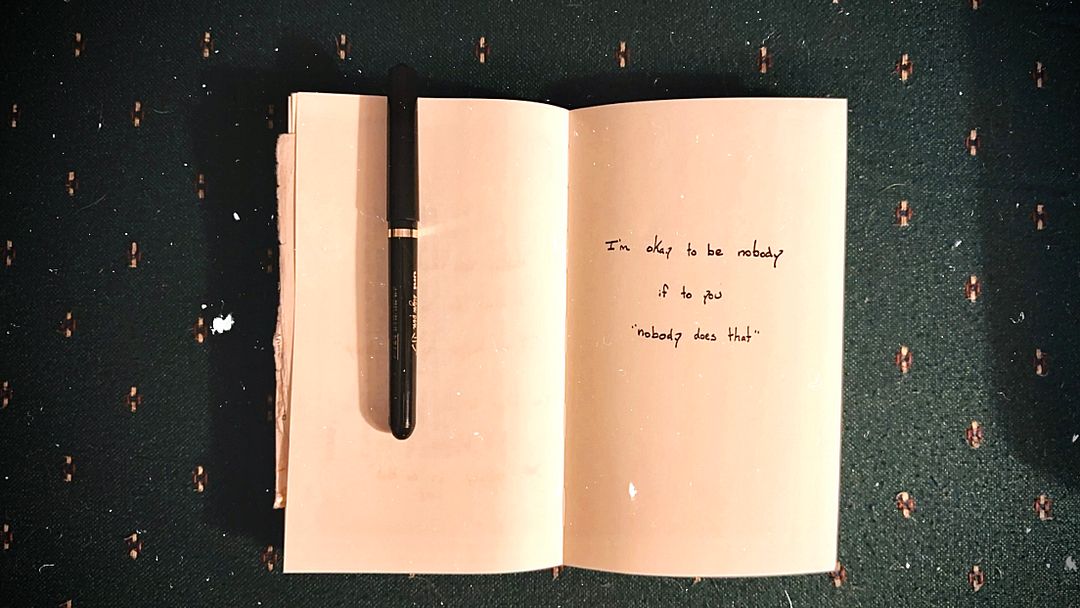 I'm okay to be nobody
if to you
"nobody does that"